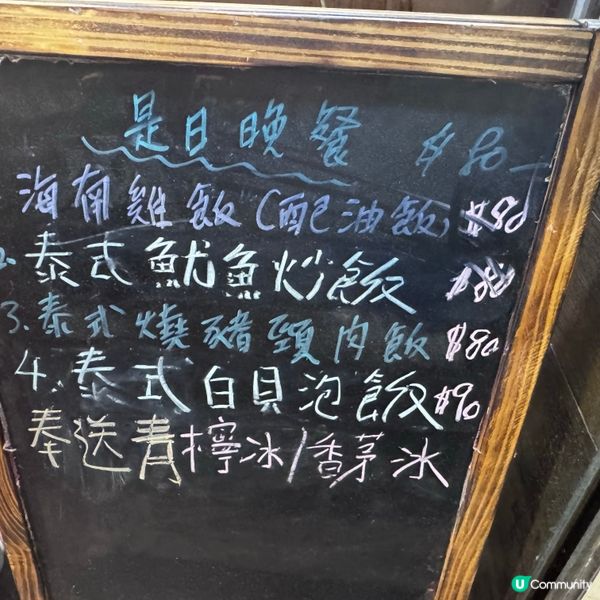 是日晚餐 $80
海南雞飯(配油飯) $80
2. 泰式魷魚炒飯 $80
3. 泰式燒豬頸肉飯 $80
4. 泰式白貝泡飯 $90
奉送青檸冰/香茅冰
U Community